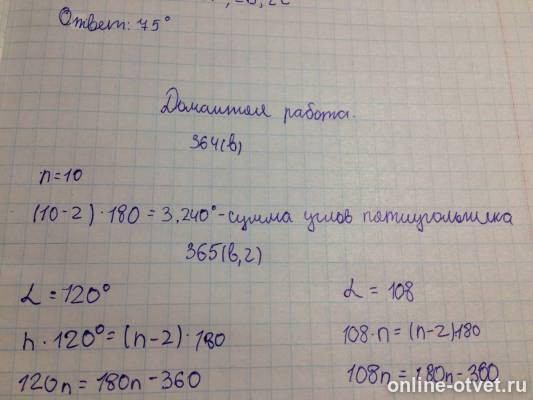 Ответ: 75°
Домашняя работа.
364(в)
n=10
(10-2)·180=3.240°-сумма углов пятиугольника
365(в,г)
L=120°
n·120°=(n-2)·180
120n=180n-360
L=108
108·n=(n-2)·180
108n=180n-360
online-otvet.ru